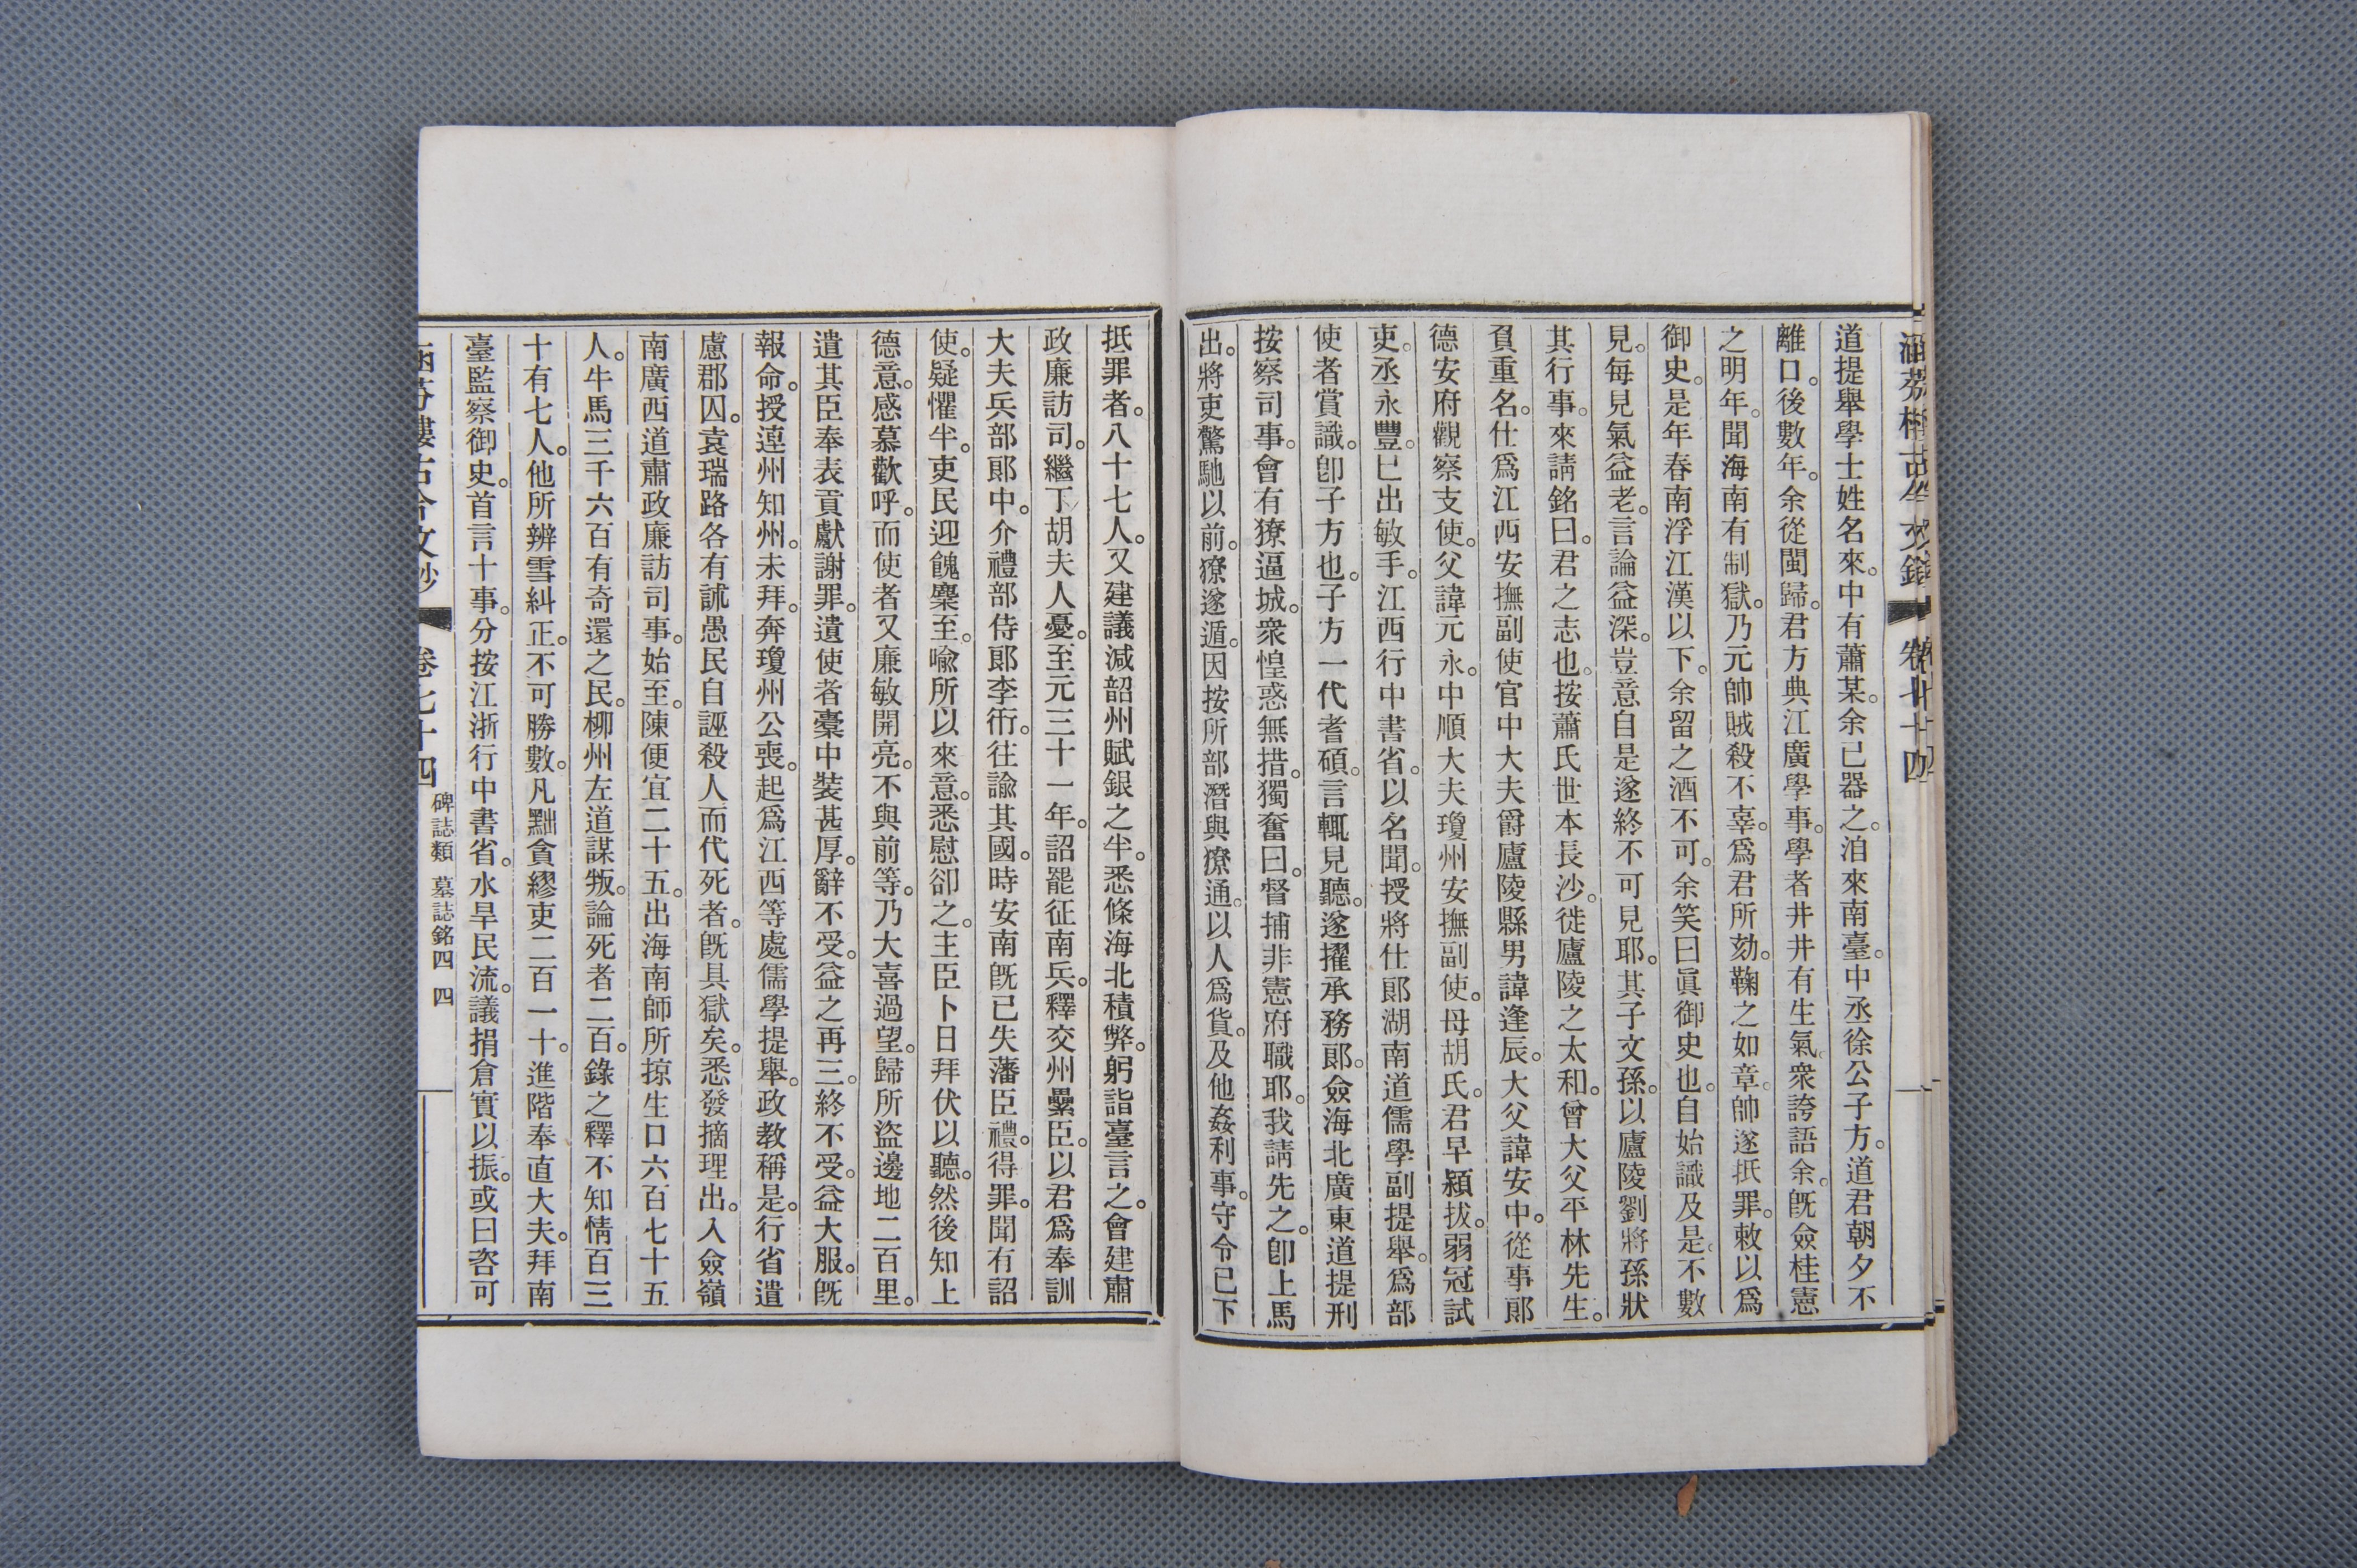 道提舉學士姓名來。中有蕭某。余已器之。洎來南臺。中丞徐公子方。道君朝夕不
離口。後數年。余從閩歸。君方典江廣學事。學者井井有生氣。衆誇語余。旣僉桂憲
之明年。聞海南有制獄。乃元帥賊殺不辜。爲君所劾。鞠之如章。帥遂抵罪。敕以爲
御史。是年春南浮江漢以下。余留之酒不可。余笑曰眞御史也。自始識及是。不數
見。每見氣益老。言論益深。豈意自是遂終不可見耶。其子文孫。以廬陵劉將孫狀
其行事。來請銘曰。君之志也。按蕭氏世本長沙。徙廬陵之太和。曾大父平林先生。
負重名。仕爲江西安撫副使官中大夫爵廬陵縣男諱逢辰。大父諱安中。從事郞
德安府觀察支使。父諱元永。中順大夫瓊州安撫副使。母胡氏。君早穎拔。弱冠試
吏。丞永豐。巳出敏手。江西行中書省。以名聞。授將仕郞湖南道儒學副提舉。爲部
使者賞識。卽子方也。子方一代耆碩。言輒見聽。遂擢承務郞。僉海北廣東道提刑
按察司事。會有獠逼城。衆惶惑無措。獨奮曰。督捕非憲府職耶。我請先之。卽上馬
出。將吏驚馳以前。獠遂遁。因按所部潛與獠通。以人爲貨。及他姦利事。守令已下
抵罪者。八十七人。又建議減韶州賦銀之半。悉條海北積弊。躬詣臺言之。會建肅
政廉訪司。繼丁胡夫人憂。至元三十一年。詔罷征南兵。釋交州纍臣。以君爲奉訓
大夫兵部郞中。介禮部侍郞李衎。往諭其國。時安南旣已失藩臣禮。得罪。聞有詔
使。疑懼半。吏民迎餽麇至。喩所以來意。悉慰卻之。主臣卜日拜伏以聽。然後知上
德意。感慕歡呼。而使者又廉敏開亮。不與前等。乃大喜過望。歸所盜邊地二百里。
遣其臣奉表貢獻謝罪。遺使者橐中裝甚厚。辭不受。益之再三。終不受。益大服。旣
報命。授連州知州。未拜。奔瓊州公喪。起爲江西等處儒學提舉。政教稱是。行省遣
慮郡囚。袁瑞路各有諕愚民自誣殺人而代死者。旣具獄矣。悉發摘理出。入僉嶺
南廣西道肅政廉訪司事。始至。陳便宜二十五。出海南師所掠生口六百七十五
人。牛馬三千六百有奇還之民。柳州左道謀叛。論死者二百。錄之釋不知情百三
十有七人。他所辨雪糾正。不可勝數。凡黜貪繆吏二百一十。進階奉直大夫。拜南
臺監察御史。首言十事。分按江浙行中書省。水旱民流。議捐倉實以振。或曰咨可
卷七十四 碑誌類 墓誌銘四 四